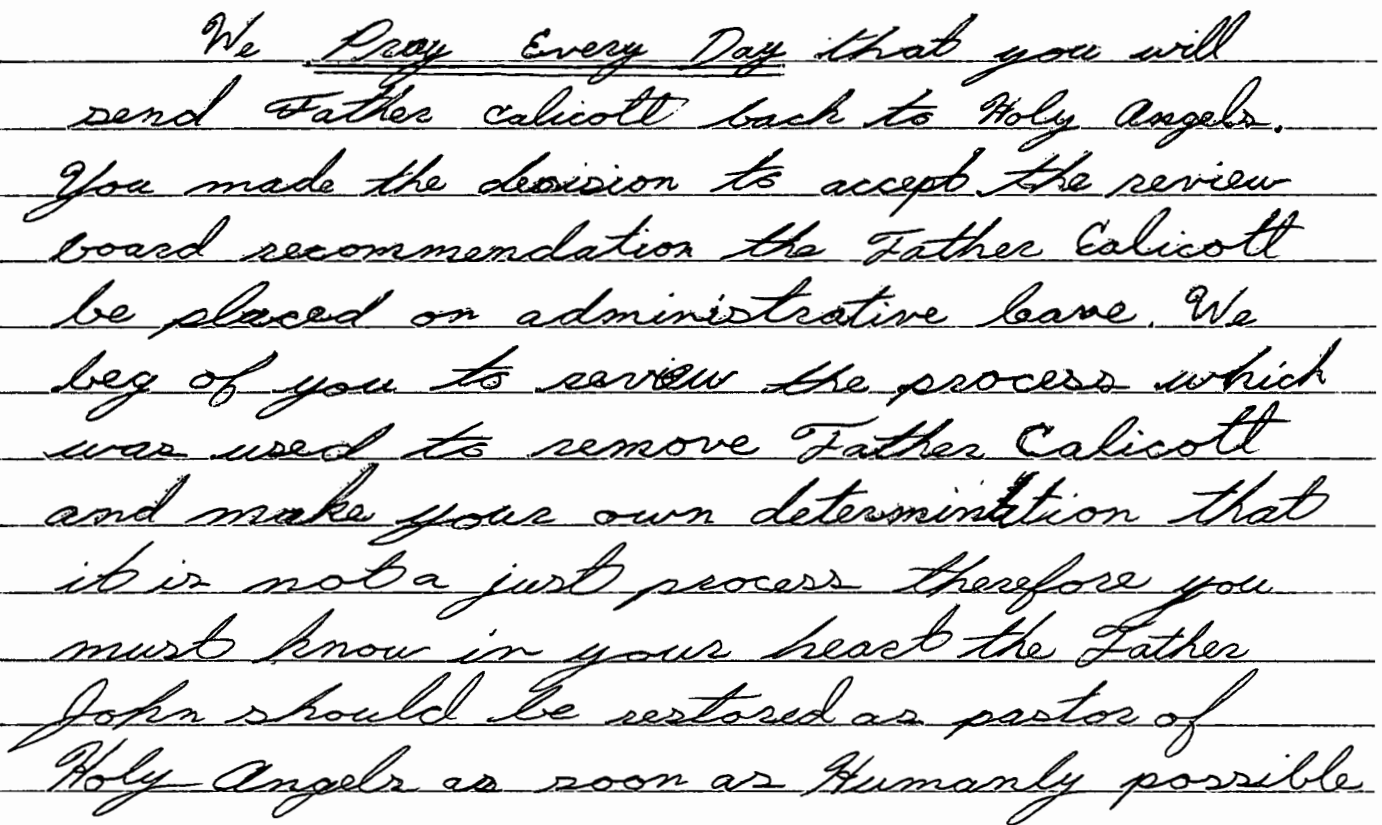 We Pray Every Day that you will
send Father Calicott back to Holy Angels.
You made the decision to accept the review
board recommendation the Father Calicott
be placed on administrative leave. We
beg of you to review the process which
was used to remove Father Calicott
and make your own determination that
it is not a just process therefore you
must know in your heart the Father
John should be restored as pastor of
Holy Angels as soon as Humanly possible